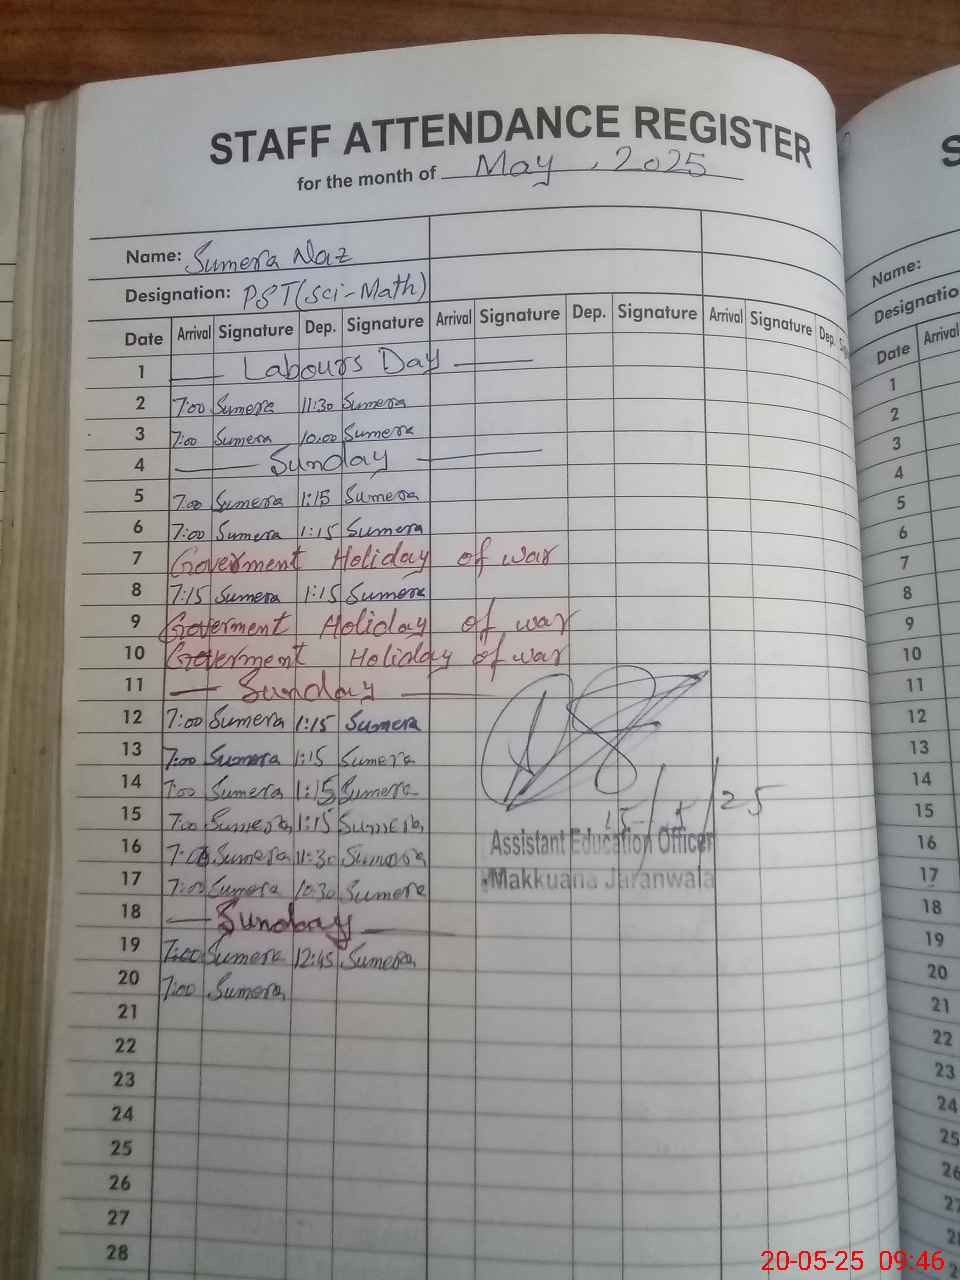 STAFF ATTENDANCE REGISTER
for the month of May, 2025
Name: Sumera Naz
Designation: PST (Sci-Math)
Date Arrival Signature Dep. Signature Arrival Signature Dep. Signature Arrival Signature Dep.
1 Labours Day
2 7:00 Sumera 11:30 Sumera
3 7:00 Sumera 10:00 Sumera
4 Sunday
5 7:00 Sumera 1:15 Sumera
6 7:00 Sumera 1:15 Sumera
7 Goverment Holiday of war
8 7:15 Sumera 1:15 Sumera
9 Goverment Holiday of war
10 Goverment Holiday of war
11 Sunday
12 7:00 Sumera 1:15 Sumera
13 7:00 Sumera 1:15 Sumera
14 7:00 Sumera 1:15 Sumera
15 7:00 Sumera 1:15 Sumera
16 7:00 Sumera 11:30 Sumera
17 7:00 Sumera 10:30 Sumera
18 Sunday
19 7:00 Sumera 12:45 Sumera
20 7:00 Sumera
21
22
23
24
25
26
27
28
15/5/25
Assistant Education Officer
Makkuana Jaranwala
Name:
Date Arrival
1
2
3
4
5
6
7
8
9
10
11
12
13
14
15
16
17
18
19
20
21
22
23
24
25
26
20-05-25 09:46